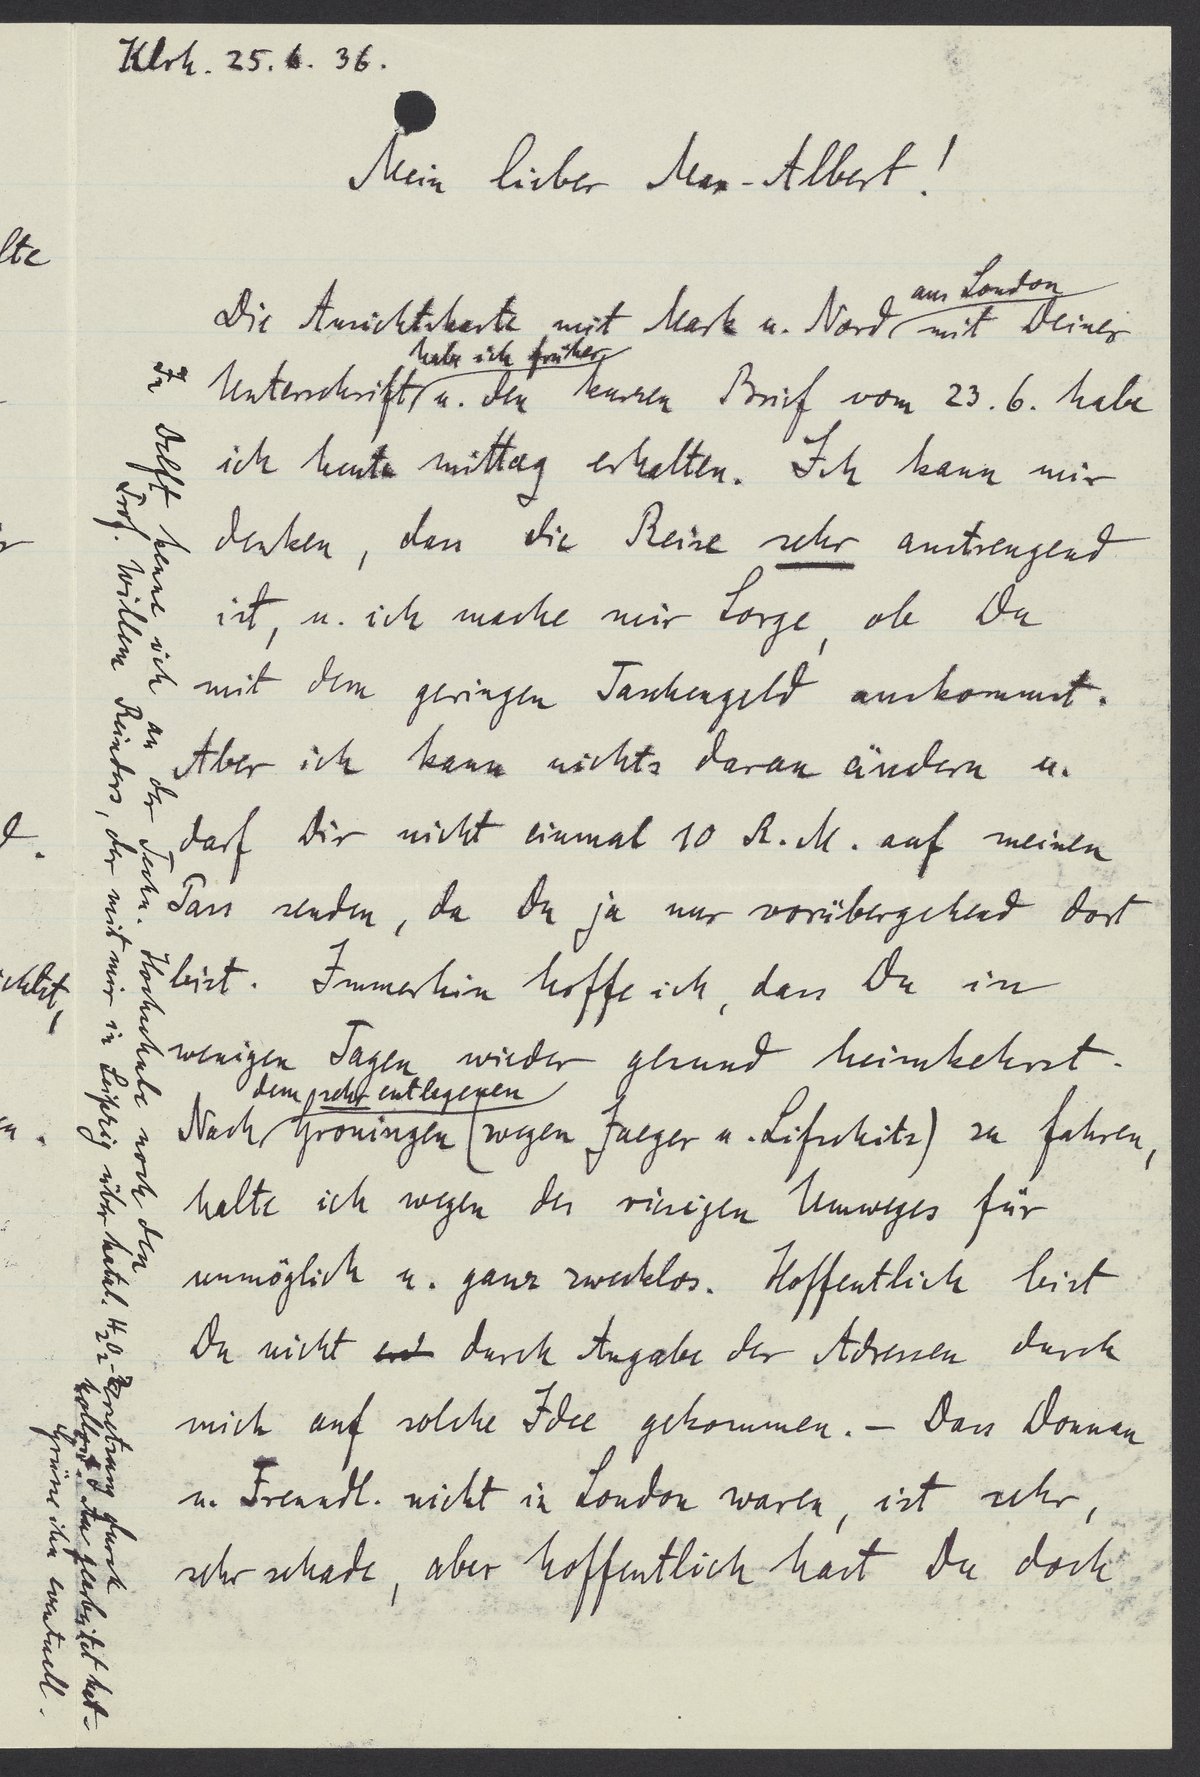 Klrh. 25. 6. 36.
Mein lieber Max-Albert!
aus London
Die Ansichtskarte mit Mark u. Nord mit Deiner
habe ich früher
Unterschrift u. den kurzen Brief vom 23. 6. habe
ich heute mittag erhalten. Ich kann mir
denken, dass die Reise sehr anstrengend
ist, u. ich mache mir Sorge, ob Du
mit dem geringen Taschengeld auskommst.
Aber ich kann nichts daran ändern u.
darf Dir nicht einmal 10 R. M. auf meinen
Pass senden, da Du ja nur vorübergehend dort
bist. Immerhin hoffe ich, dass Du in
wenigen Tagen wieder gesund heimkehrst.
dem sehr entlegenen
Nach Groningen (wegen Jaeger u. Lifschitz) zu fahren,
halte ich wegen des riesigen Umweges für
unmöglich u. ganz zwecklos. Hoffentlich bist
Du nicht durch Angabe der Adressen durch
mich auf solche Idee gekommen. – Dass Donnan
u. Freundl. nicht in London waren, ist sehr,
sehr schade, aber hoffentlich hast Du doch
In Delft kenne ich an der Techn. Hochschule noch den
Prof. Willem Reinders, der mit mir in Leipzig über katal. H2O2-Zersetzung durch
kolloid. Au gearbeitet hat –
Grüsse ihn eventuell.
lte
d.